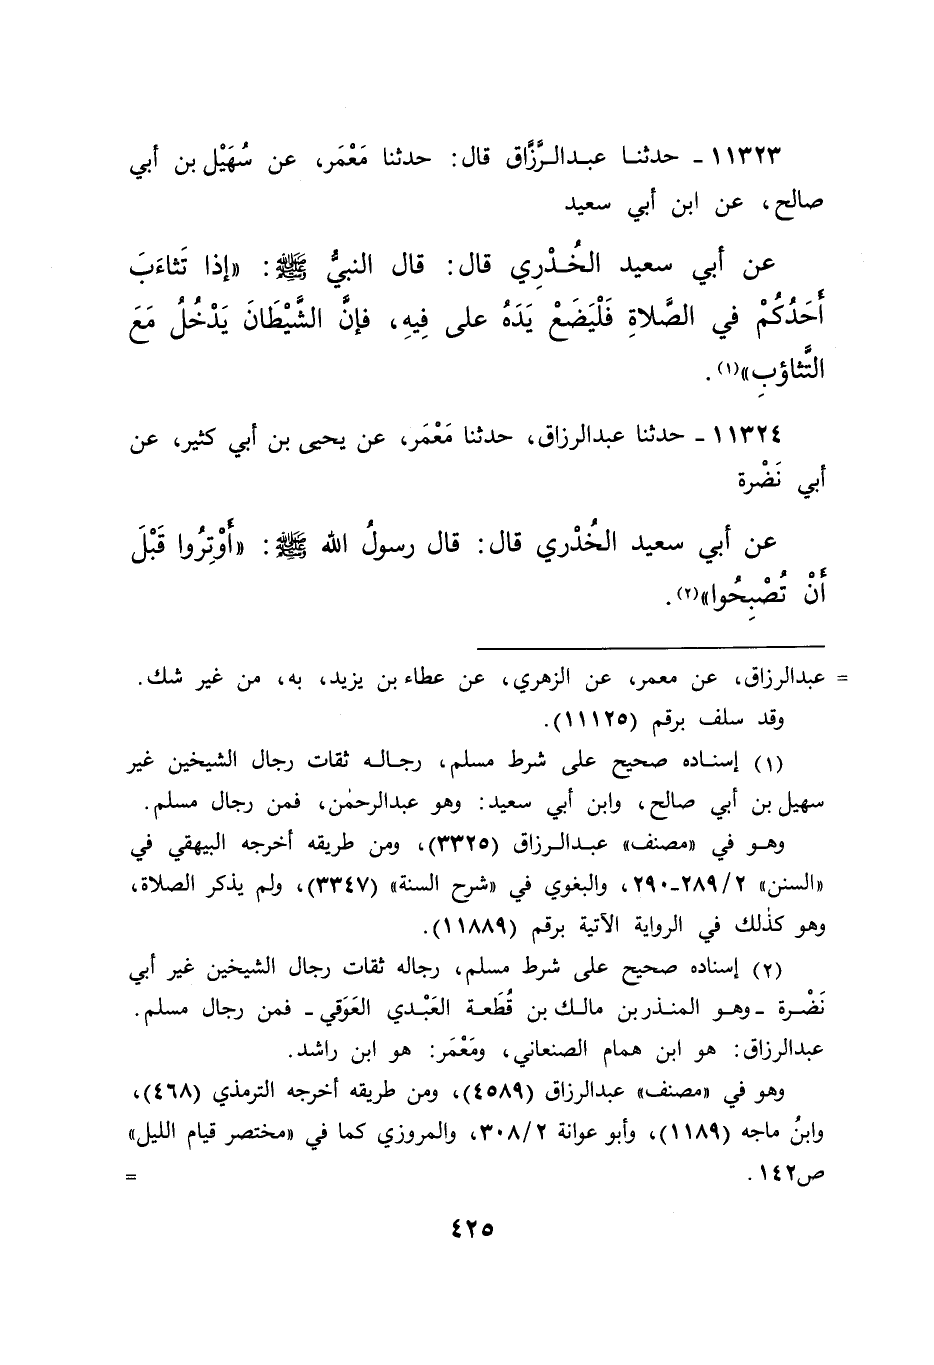 ١١٣٢٣ - حدثنا عبدالرَّزَّاق قال: حدثنا مَعْمَر، عن سُهَيْل بن أبي
صالح، عن ابن أبي سعيد
عن أبي سعيد الخُدْرِي قال: قال النبيُّ ﷺ: «إذا تَثاءَبَ
أَحَدُكُمْ في الصَّلاةِ فَلْيَضَعْ يَدَهُ على فِيهِ، فإنَّ الشَّيْطَانَ يَدْخُلُ مَعَ
التَّثاؤبِ»(١).
١١٣٢٤ - حدثنا عبدالرزاق، حدثنا مَعْمَر، عن يحيى بن أبي كثير، عن
أبي نَضْرة
عن أبي سعيد الخُدْري قال: قال رسولُ الله ﷺ: «أَوْتِرُوا قَبْلَ
أَنْ تُصْبِحُوا»(٢).
= عبدالرزاق، عن معمر، عن الزهري، عن عطاء بن يزيد، به، من غير شك.
وقد سلف برقم (١١١٢٥).
(١) إسناده صحيح على شرط مسلم، رجاله ثقات رجال الشيخين غير
سهيل بن أبي صالح، وابن أبي سعيد: وهو عبدالرحمٰن، فمن رجال مسلم.
وهو في «مصنف» عبدالرزاق (٣٣٢٥)، ومن طريقه أخرجه البيهقي في
«السنن» ٢/ ٢٨٩-٢٩٠، والبغوي في «شرح السنة» (٣٣٤٧)، ولم يذكر الصلاة،
وهو كذٰلك في الرواية الآتية برقم (١١٨٨٩).
(٢) إسناده صحيح على شرط مسلم، رجاله ثقات رجال الشيخين غير أبي
نَضْرة - وهو المنذر بن مالك بن قُطَعة العَبْدي العَوَقي - فمن رجال مسلم.
عبدالرزاق: هو ابن همام الصنعاني، ومَعْمَر: هو ابن راشد.
وهو في «مصنف» عبدالرزاق (٤٥٨٩)، ومن طريقه أخرجه الترمذي (٤٦٨)،
وابنُ ماجه (١١٨٩)، وأبو عوانة ٣٠٨/٢، والمروزي كما في «مختصر قيام الليل»
ص١٤٢. =
٤٢٥